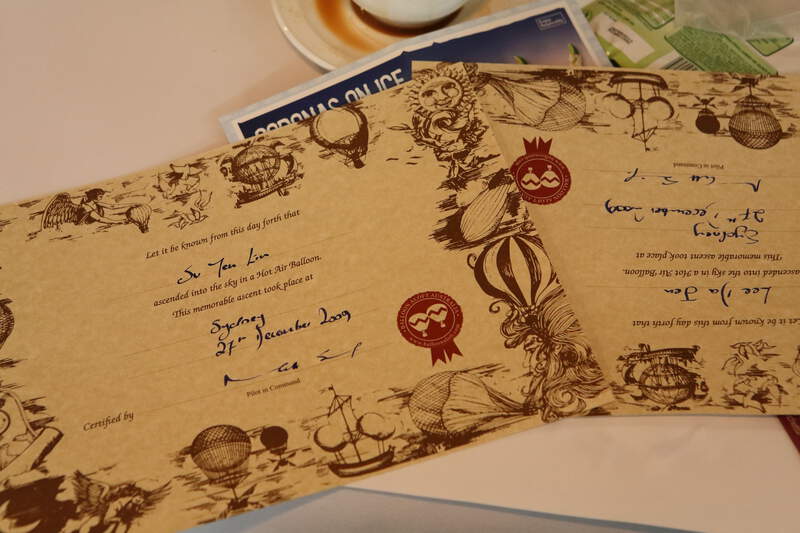 CORONAS ON ICE
Let it be known from this day forth that
Su Jen Lin
ascended into the sky in a Hot Air Balloon.
This memorable ascent took place at
Sydney
27th December 2009
Pilot in Command
Certified by
BALLOON ALOFT AUSTRALIA
Let it be known from this day forth that
Lee Da Jen
ascended into the sky in a Hot Air Balloon.
This memorable ascent took place at
Sydney
27th December 2009
Pilot in Command